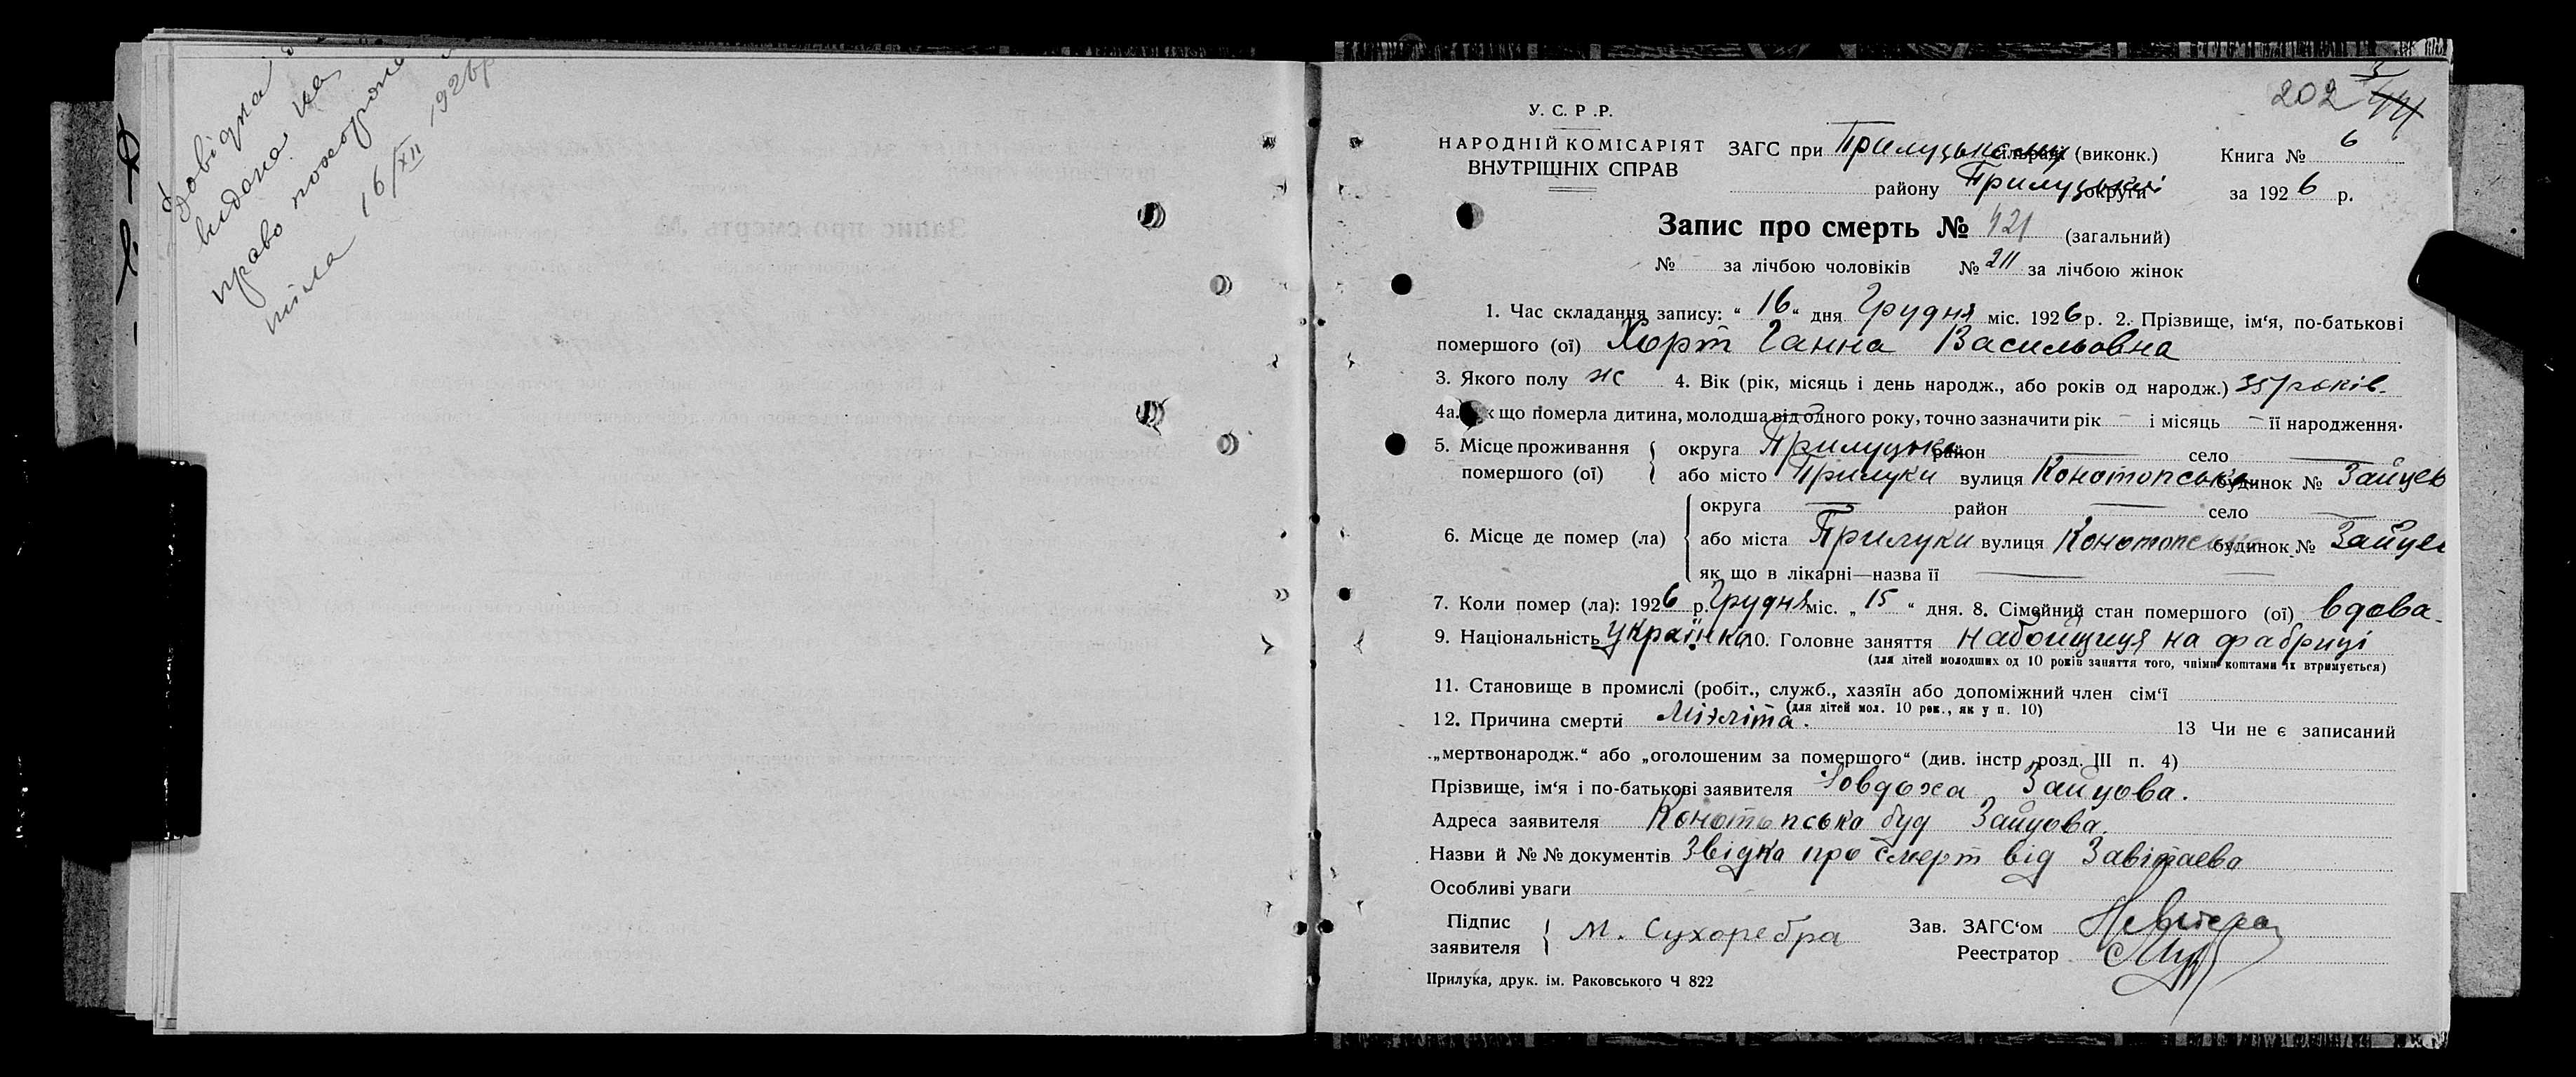 Довідка
видана на
право похорона
тіла 16/XII 1926р
202
У. С. Р .Р.
НАРОДНІЙ КОМІСАРІЯТ
ВНУТРІШНІХ СПРАВ
ЗАГС при Прилуцькому (виконк.)
району Прилуцької округи
Книга № 6
за 1926 р.
Запис про смерть № 421 (загальний)
№ за лічбою чоловіків № 211 за лічбою жінок
1. Час складання запису: “ 16 “ дня Грудня міс. 1926 р. 2. Прізвище, ім‘я, по-батькові
помершого (ої) Хорт Ганна Васильовна
3. Якого полу ж 4. Вік (рік, місяць і день народж., або років од народж.) 35 років.
4а. Як що померла дитина, молодша від одного року, точно зазначити рік — і місяць — її народження.
5. Місце проживання помершого (ої) { округа Прилуцька район — село —
або місто Прилуки вулиця Конотопська будинок № Зайцев
6. Місце де помер (ла) { округа — район — село —
або міста Прилуки вулиця Конотопська будинок № Зайцев
як що в лікарні—назва її —
7. Коли помер (ла): 1926 р. Грудня міс. „ 15 “ дня. 8. Сімейний стан помершого (ої) вдова
9. Національність українка 10. Головне заняття набойщиця на фабриці
(для дітей молодших од 10 років заняття того, чпіми коштами їх втримується)
11. Становище в промислі (робіт., служб., хазяїн або допоміжний член сім‘ї
(для дітей мол. 10 рок., як у п. 10)
12. Причина смерти 13 Чи не є записаний
„мертвонародж.“ або „оголошеним за помершого“ (див. інстр розд. III п. 4)
Прізвище, ім‘я і по-батькові заявителя Човдоха Зайцова.
Адреса заявителя Конотопська буд Зайцова.
Назви й №№ документів Звідка про смерт від Завітаева
Особливі уваги
Підпис заявителя { М. Сухоребра
Зав. ЗАГС‘ом
Реестратор
Прилука, друк. ім. Раковського Ч 822